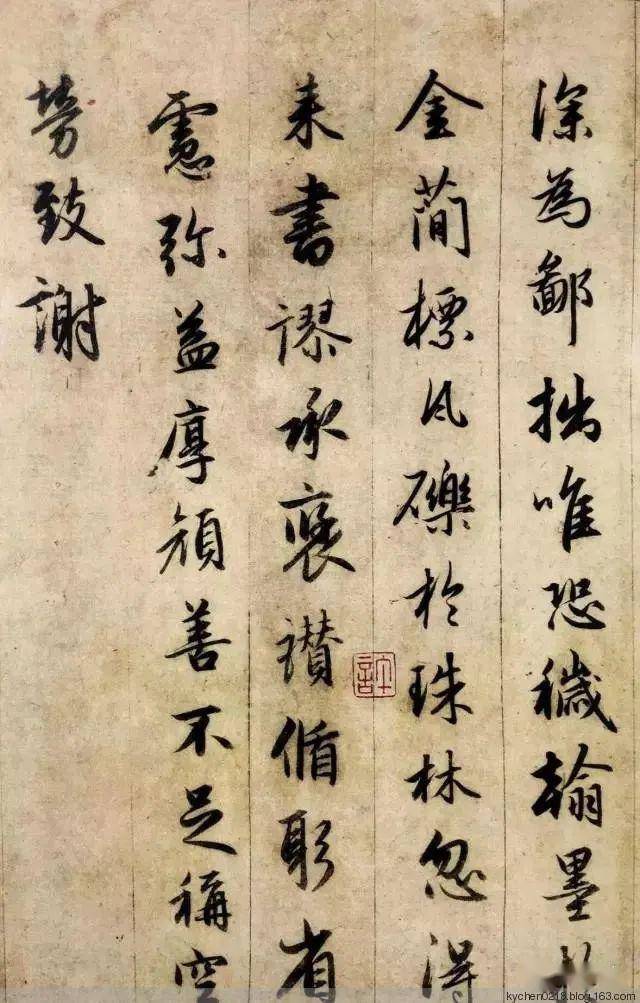 深為鄙拙唯恐穢翰墨於
金蕳標瓦礫於珠林忽得
来書謬承褒讃偱躬省
慮弥益厚顔善不足稱空
勞致謝
kychen0218.blog.163.com